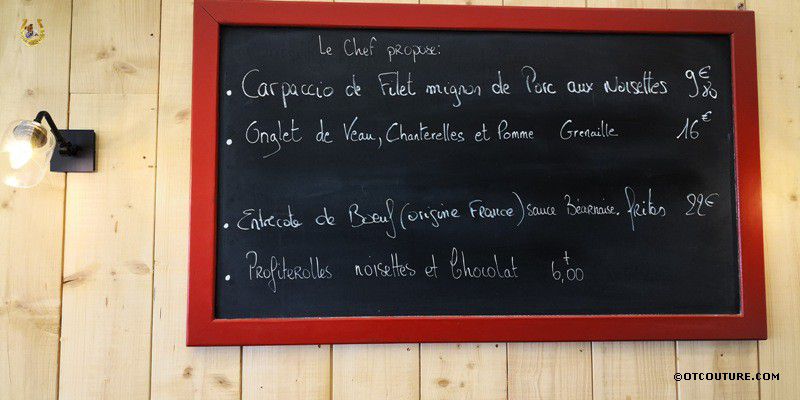 Le Chef propose:
• Carpaccio de Filet mignon de Porc aux Noisettes 9€80
• Onglet de Veau, Chanterelles et Pomme Grenaille 16€
• Entrecote de Boeuf (origine France) sauce Béarnaise, frites 22€
• Profiterolles noisettes et Chocolat 6,00
©OTCOUTURE.COM